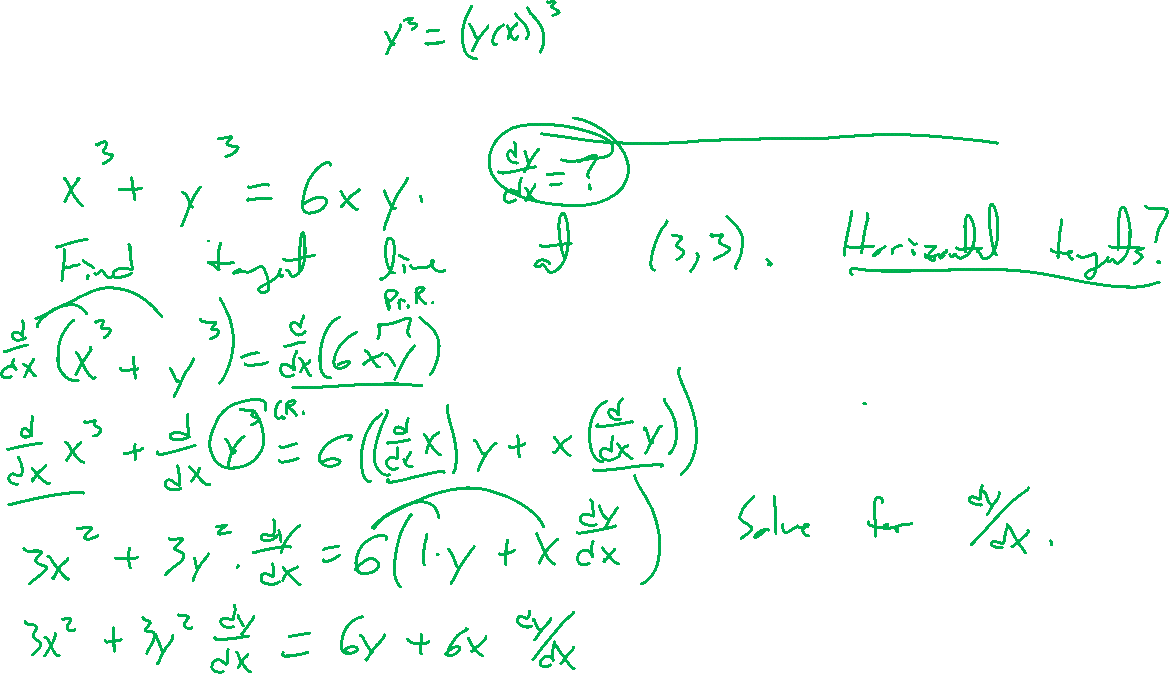 y³ = (y(x))³
x³ + y³ = 6xy. dy/dx = ?
Find tangent line at (3,3). Horizontal tangents?
Pr.R.
d/dx (x³ + y³) = d/dx (6xy)
d/dx x³ + d/dx y³ C.R. = 6((d/dx x) y + x (d/dx y))
3x² + 3y² · dy/dx = 6(1·y + x dy/dx) Solve for dy/dx.
3x² + 3y² dy/dx = 6y + 6x dy/dx